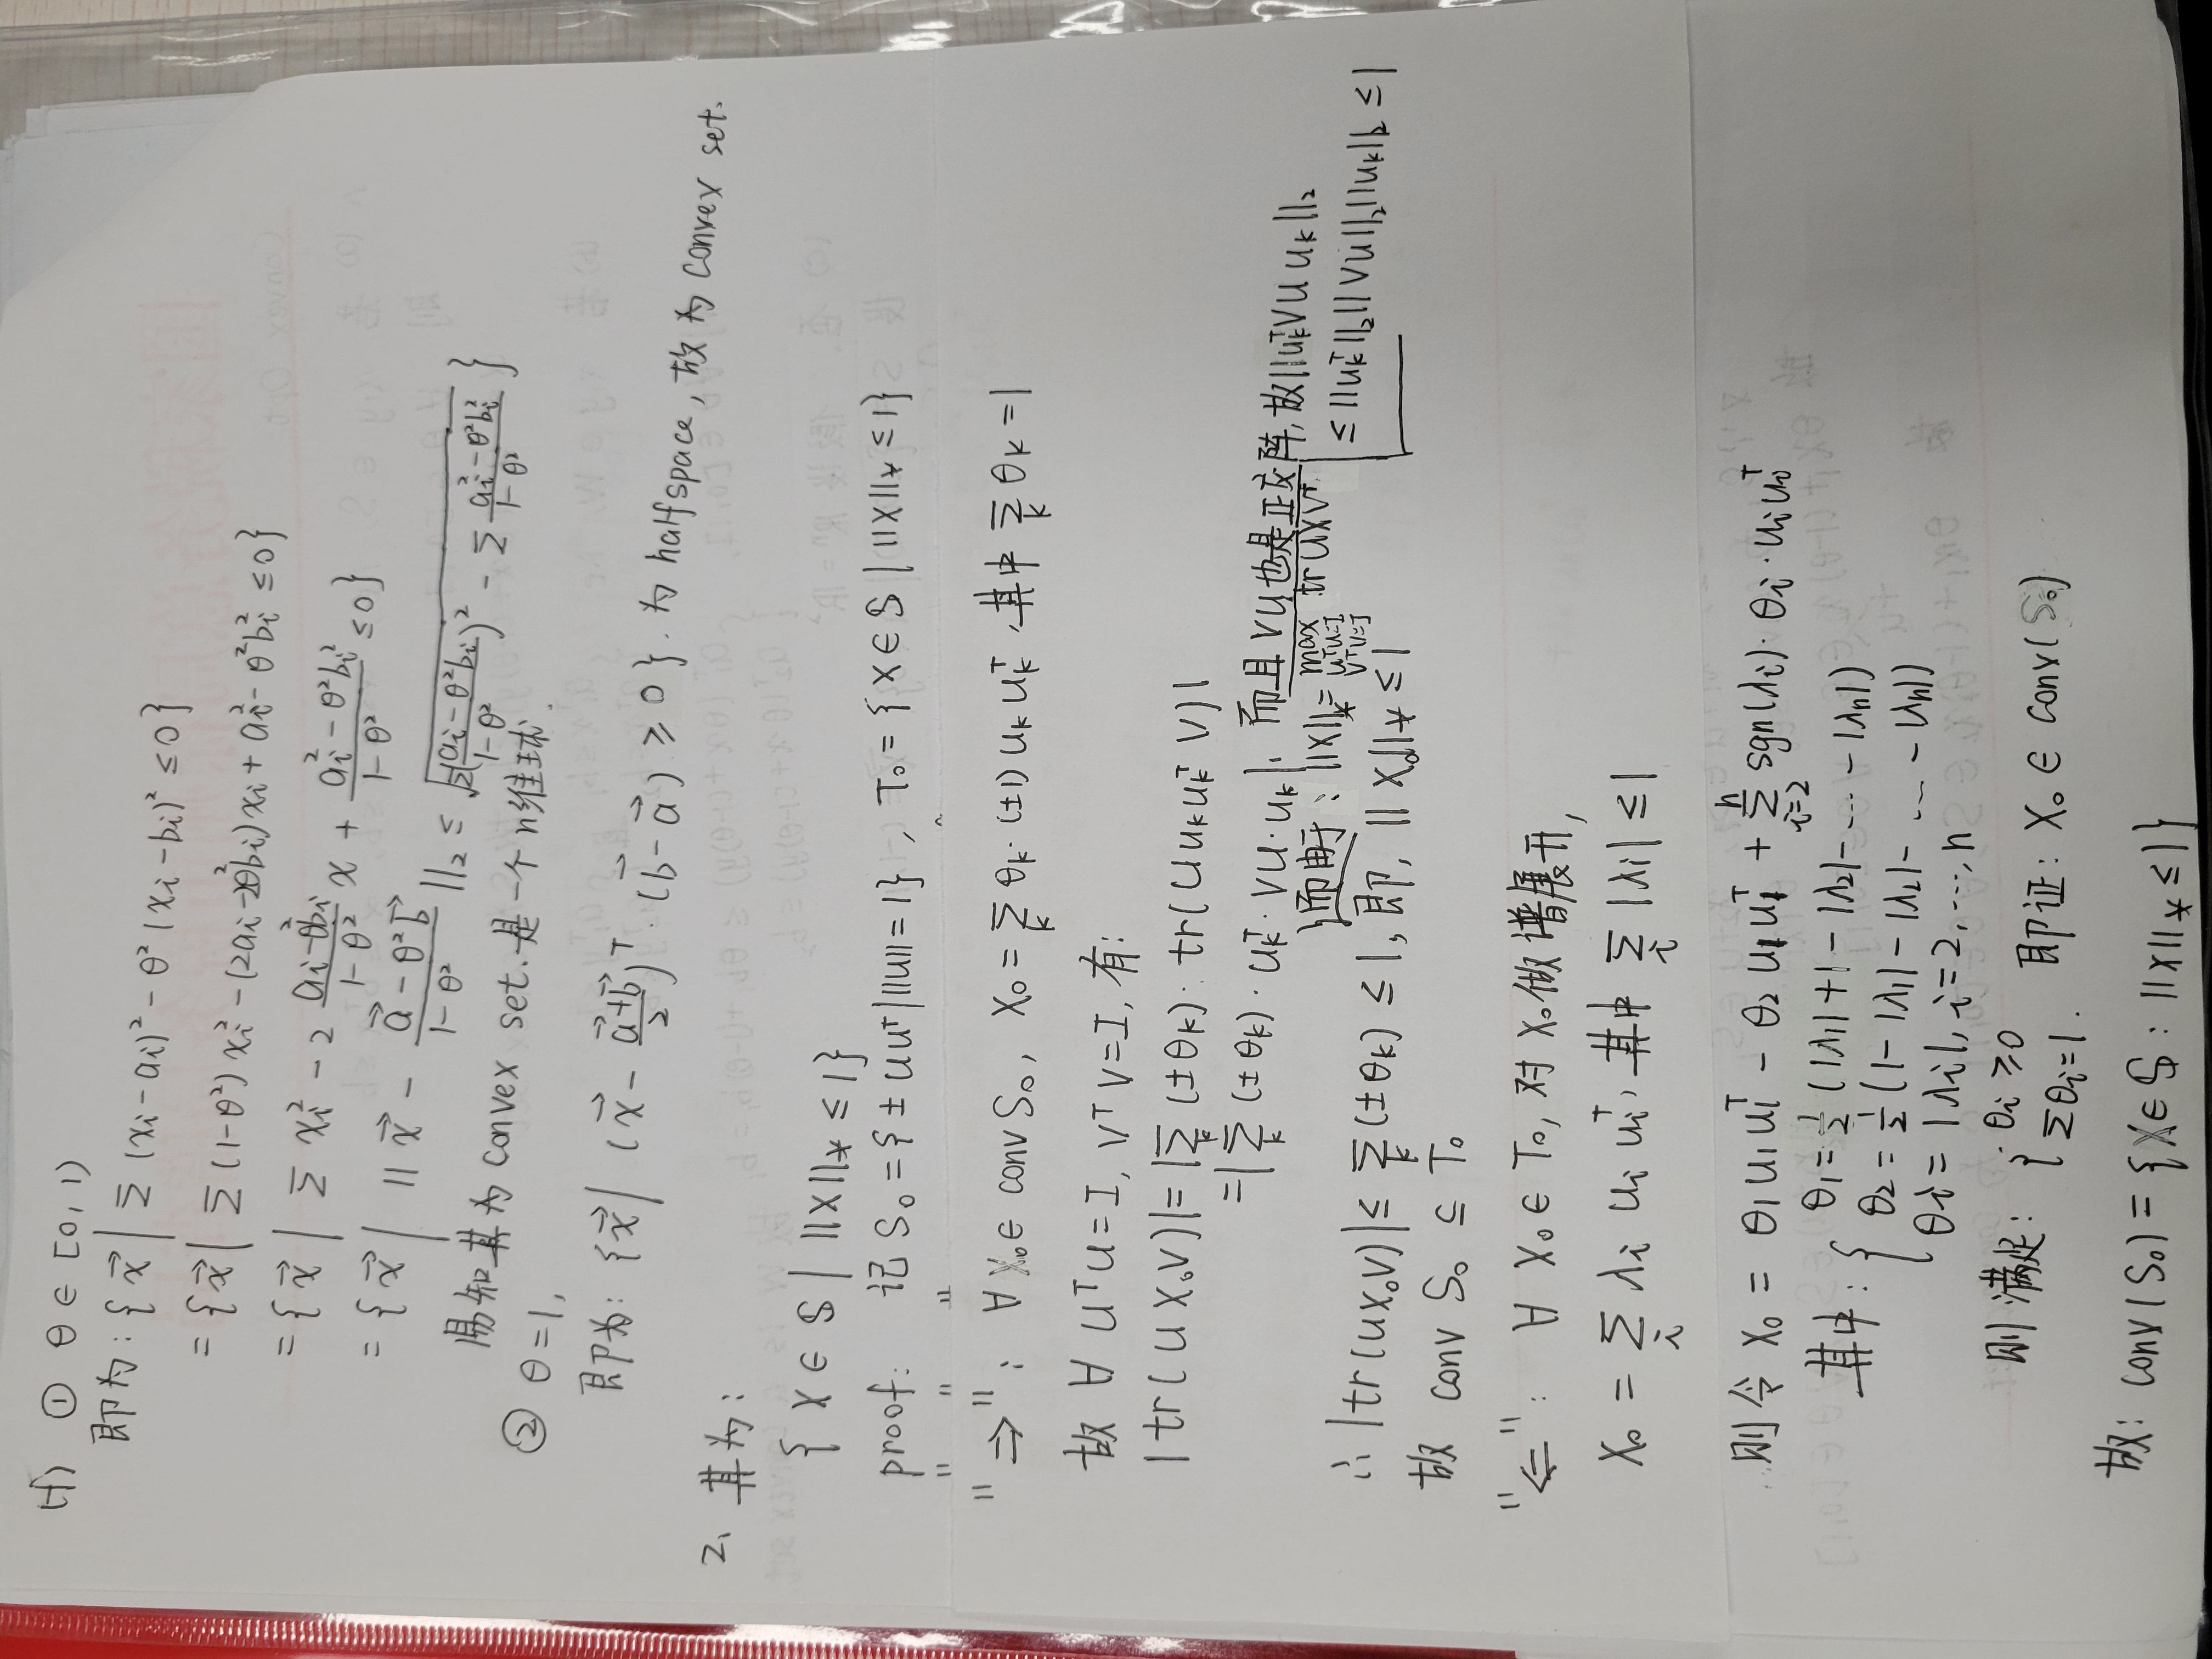 (f) ① θ ∈ [0, 1)
即为: { x⃗ | Σ (xi - ai)² - θ² (xi - bi)² ≤ 0 }
= { x⃗ | Σ (1-θ²) xi² - (2ai - 2θ²bi) xi + ai² - θ²bi² ≤ 0 }
= { x⃗ | Σ xi² - 2 (ai - θ²bi)/(1-θ²) x + (ai² - θ²bi²)/(1-θ²) ≤ 0 }
= { x⃗ | || x⃗ - (a⃗ - θ²b⃗)/(1-θ²) ||₂ ≤ √(Σ((ai - θ²bi)/(1-θ²))² - Σ (ai² - θ²bi²)/(1-θ²)) }
易知其为 convex set. 是一个 n维球.
② θ = 1,
即为: { x⃗ | (x⃗ - (a⃗+b⃗)/2)ᵀ · (b⃗ - a⃗) ≥ 0 }. 为 halfspace, 故为 convex set.
2. 其为:
{ X ∈ 𝕊 | ||X||* ≤ 1 }
proof: 记 S₀ = { ± uuᵀ | ||u|| = 1 } , T₀ = { X ∈ 𝕊 | ||X||* ≤ 1 }
"⇒" : ∀ X₀ ∈ conv S₀, X₀ = Σₖ θₖ · (±1) uₖ uₖᵀ, 其中 Σₖ θₖ = 1
故 ∀ UᵀU = I, VᵀV = I, 有:
| tr(U X₀ V)| = |Σₖ (±θₖ) · tr(U uₖ uₖᵀ V)|
= |Σₖ (±θₖ) · uₖᵀ · VU · uₖ|. 而且 VU 也是正交阵, 故 ||uₖᵀ VU uₖ||₂
≤ ||uₖᵀ||₂ || VU ||₂ ||uₖ||₂ ≤ 1
而由于: ||X||* = max_{UᵀU=I, VᵀV=I} tr UXVᵀ
∴ |tr(UX₀V)| ≤ Σₖ (±θₖ) ≤ 1, 即, || X₀||* ≤ 1
故 conv S₀ ⊆ T₀
"⇐" : ∀ X₀ ∈ T₀, 对 X₀ 做谱展开,
X₀ = Σᵢ λi ui uiᵀ, 其中 Σᵢ |λi| ≤ 1
则令 X₀ = θ₁ u₁ u₁ᵀ - θ₂ u₁ u₁ᵀ + Σ_{i=2}^{n} sgn(λi) · θi · ui uiᵀ
其中: { θ₁ = ½ (|λ₁| + 1 - |λ₂| - ... - |λn|)
θ₂ = ½ (1 - |λ₁| - |λ₂| - ... - |λn|)
θi = |λi|, i = 2, ..., n
则满足: { θi ≥ 0
Σθi = 1. 即证: X₀ ∈ conv(S₀)
故: conv(S₀) = { X ∈ 𝕊 : ||X||* ≤ 1 }